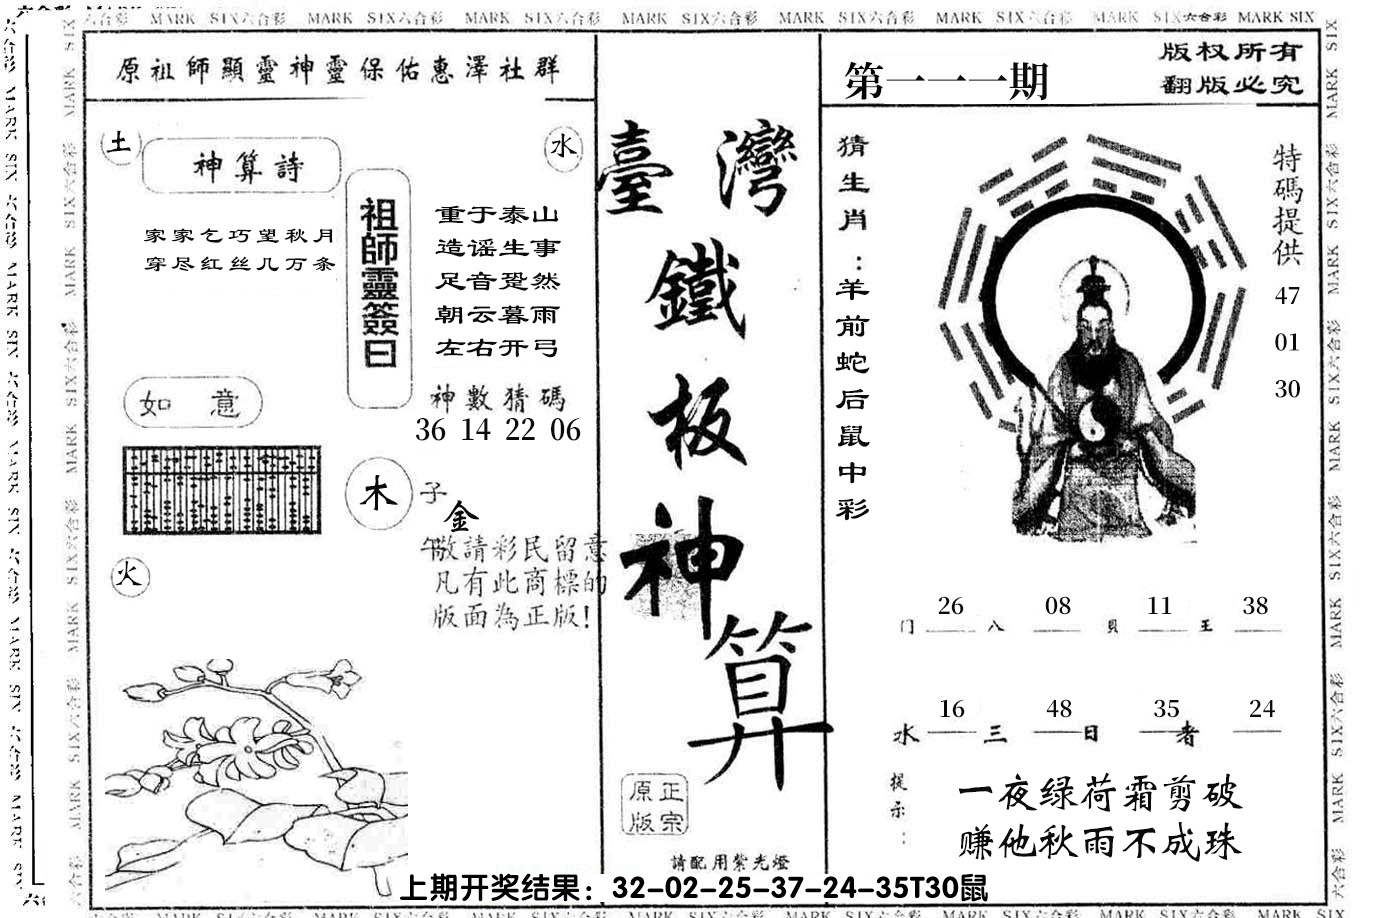 六合彩 MARK SIX六合彩 MARK SIX六合彩 MARK SIX六合彩 MARK SIX六合彩 MARK SIX六合彩 MARK SIX六合彩 MARK SIX六合彩 MARK SIX六合彩 MARK SIX
原祖師顯靈神靈保佑惠澤社群
土
神算詩
水
家家乞巧望秋月
穿尽红丝几万条
祖師靈簽曰
重于泰山
造谣生事
足音跫然
朝云暮雨
左右开弓
神數猜碼
36 14 22 06
如意
木
子
金
午
敬請彩民留意
凡有此商標的
版面為正版!
火
臺灣
鐵
板
神
算
原正
版宗
請配用紫光燈
第一一一期
版权所有
翻版必究
猜生肖:羊前蛇后鼠中彩
特碼提供
47
01
30
26 08 11 38
门 八 貝 王
16 48 35 24
水 三 日 者
提示:
一夜绿荷霜剪破
赚他秋雨不成珠
上期开奖结果：32-02-25-37-24-35T30鼠